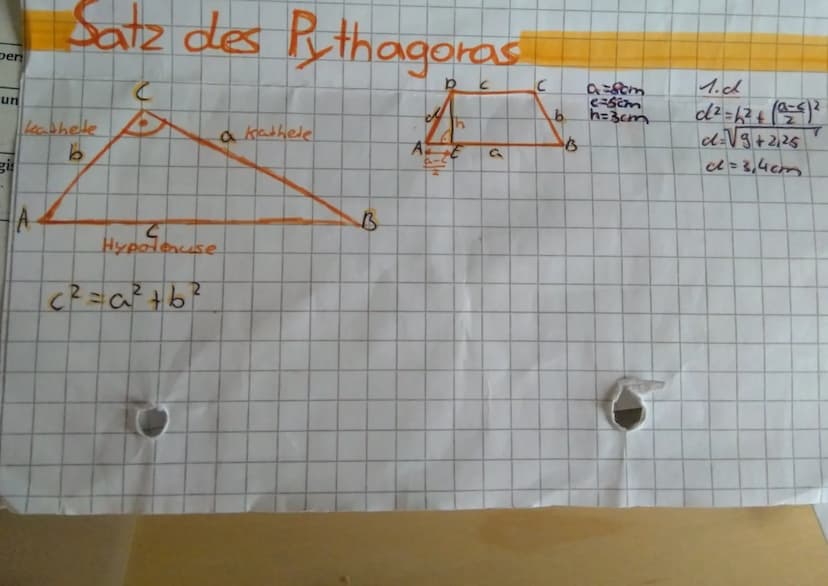 Satz des Pythagoras
C
Kathete
b
a Kathete
A
c
B
Hypotenuse
c² = a² + b²
D c C
d h b
A E a B
a-c/2
a=8cm
c=5cm
h=3cm
1.d
d²=h²+(a-c/2)²
d=√9+2,25
d=3,4cm